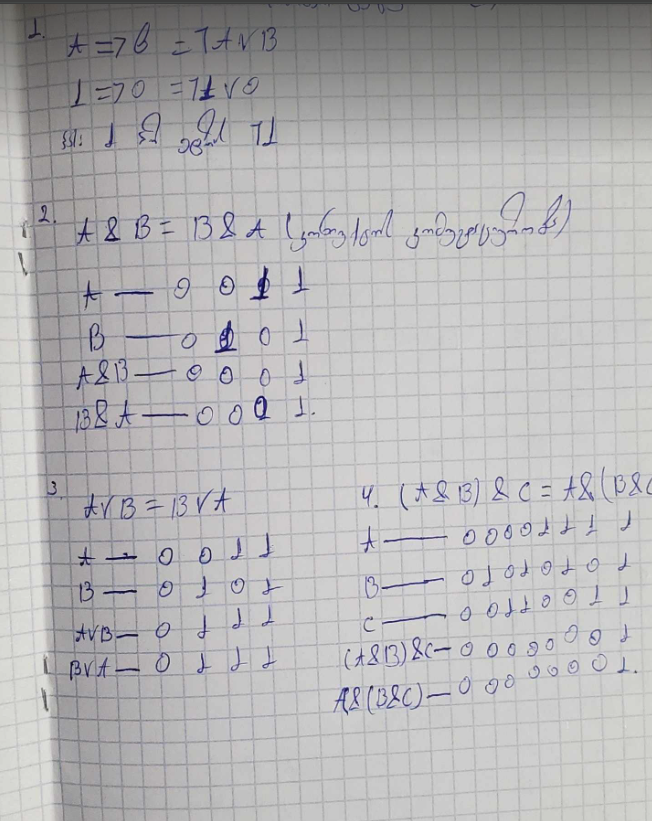 1.
A => B = ¬A ∨ B
1 => 0 = ¬1 ∨ 0
2. A & B = B & A (კონიუქციის კომუტაციურობა)
A — 0 0 1 1
B — 0 1 0 1
A&B — 0 0 0 1
B&A — 0 0 0 1.
3. A∨B = B∨A
A — 0 0 1 1
B — 0 1 0 1
A∨B — 0 1 1 1
B∨A — 0 1 1 1
4. (A&B) & C = A&(B&C
A — 0 0 0 0 1 1 1 1
B — 0 1 0 1 0 1 0 1
C — 0 0 1 1 0 0 1 1
(A&B)&C — 0 0 0 0 0 0 0 1
A&(B&C) — 0 0 0 0 0 0 0 1.